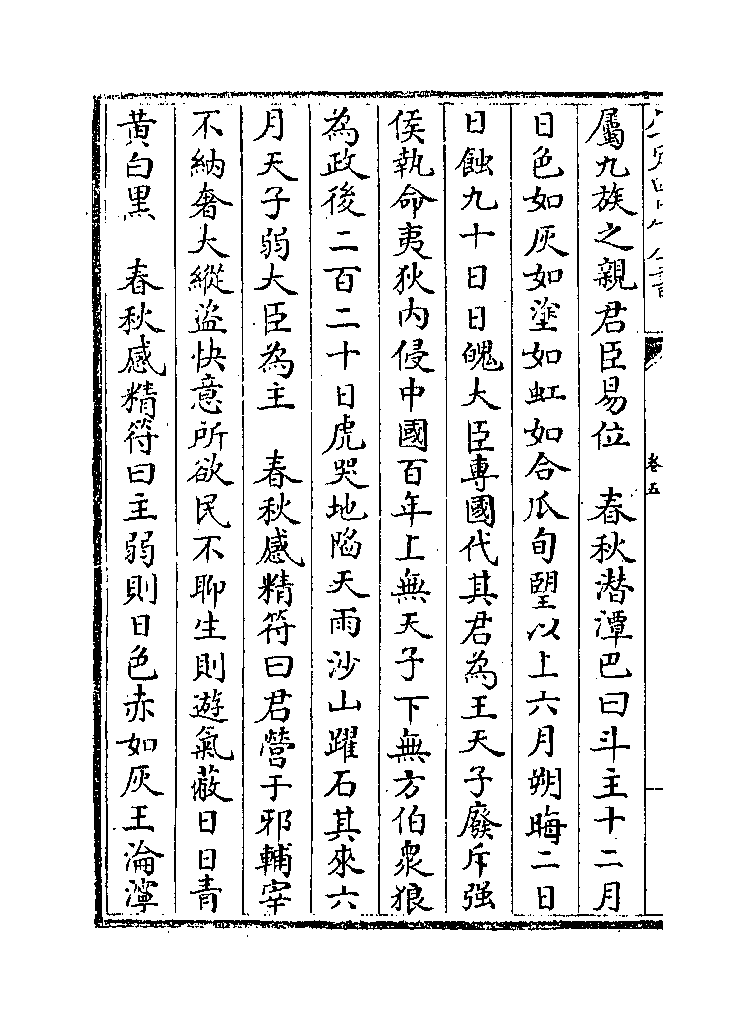 屬九族之親君臣易位　春秋潛潭巴曰斗主十二月
日色如灰如塗如虹如合瓜旬朢以上六月朔晦二日
日蝕九十日日魄大臣專國代其君為王天子廢斥强
侯執命夷狄内侵中國百年上無天子下無方伯衆狼
為政後二百二十日虎哭地陷天雨沙山躍石其來六
月天子弱大臣為主　春秋感精符曰君營于邪輔宰
不納奢大縱盗快意所欲民不聊生則遊氣蔽日日青
黄白黑　春秋感精符曰主弱則日色赤如灰王淪濘
卷五